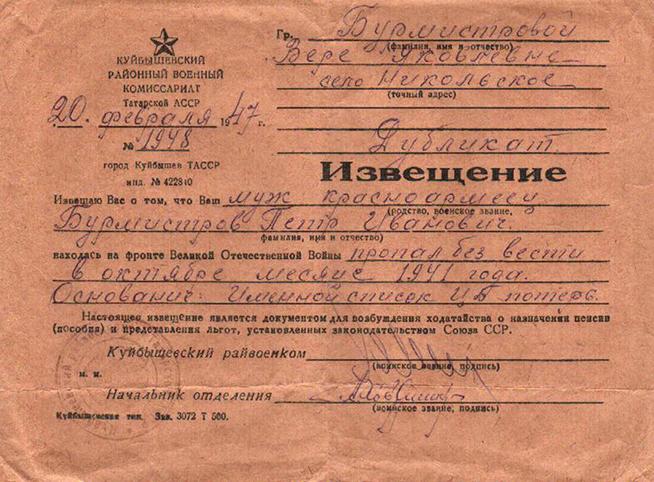 КУЙБЫШЕВСКИЙ
РАЙОННЫЙ ВОЕННЫЙ
КОМИССАРИАТ
Татарской АССР
20 февраля 1947 г.
№ 1948
город Куйбышев ТАССР
инд. № 422810
Гр. Бурмистровой
(фамилия, имя и отчество)
Вере Яковлевне
село Никольское
(точный адрес)
Дубликат
Извещение
Извещаю Вас о том, что Ваш муж красноармеец
(родство, военское звание,
Бурмистров Петр Иванович.
фамилия, имя и отчество)
находясь на фронте Великой Отечественной Войны пропал без вести
в октябре месяце 1941 года.
Основание: Именной список ЦБ потерь.
Настоящее извещение является документом для возбуждения ходатайства о назначении пенсии
(пособия) и представления льгот, установленных законодательством Союза ССР.
Куйбышевский райвоенком
(воинское звание, подпись)
м. п.
Начальник отделения
(воинское звание, подпись)
Куйбышевская тип. Зак. 3072 Т 500.